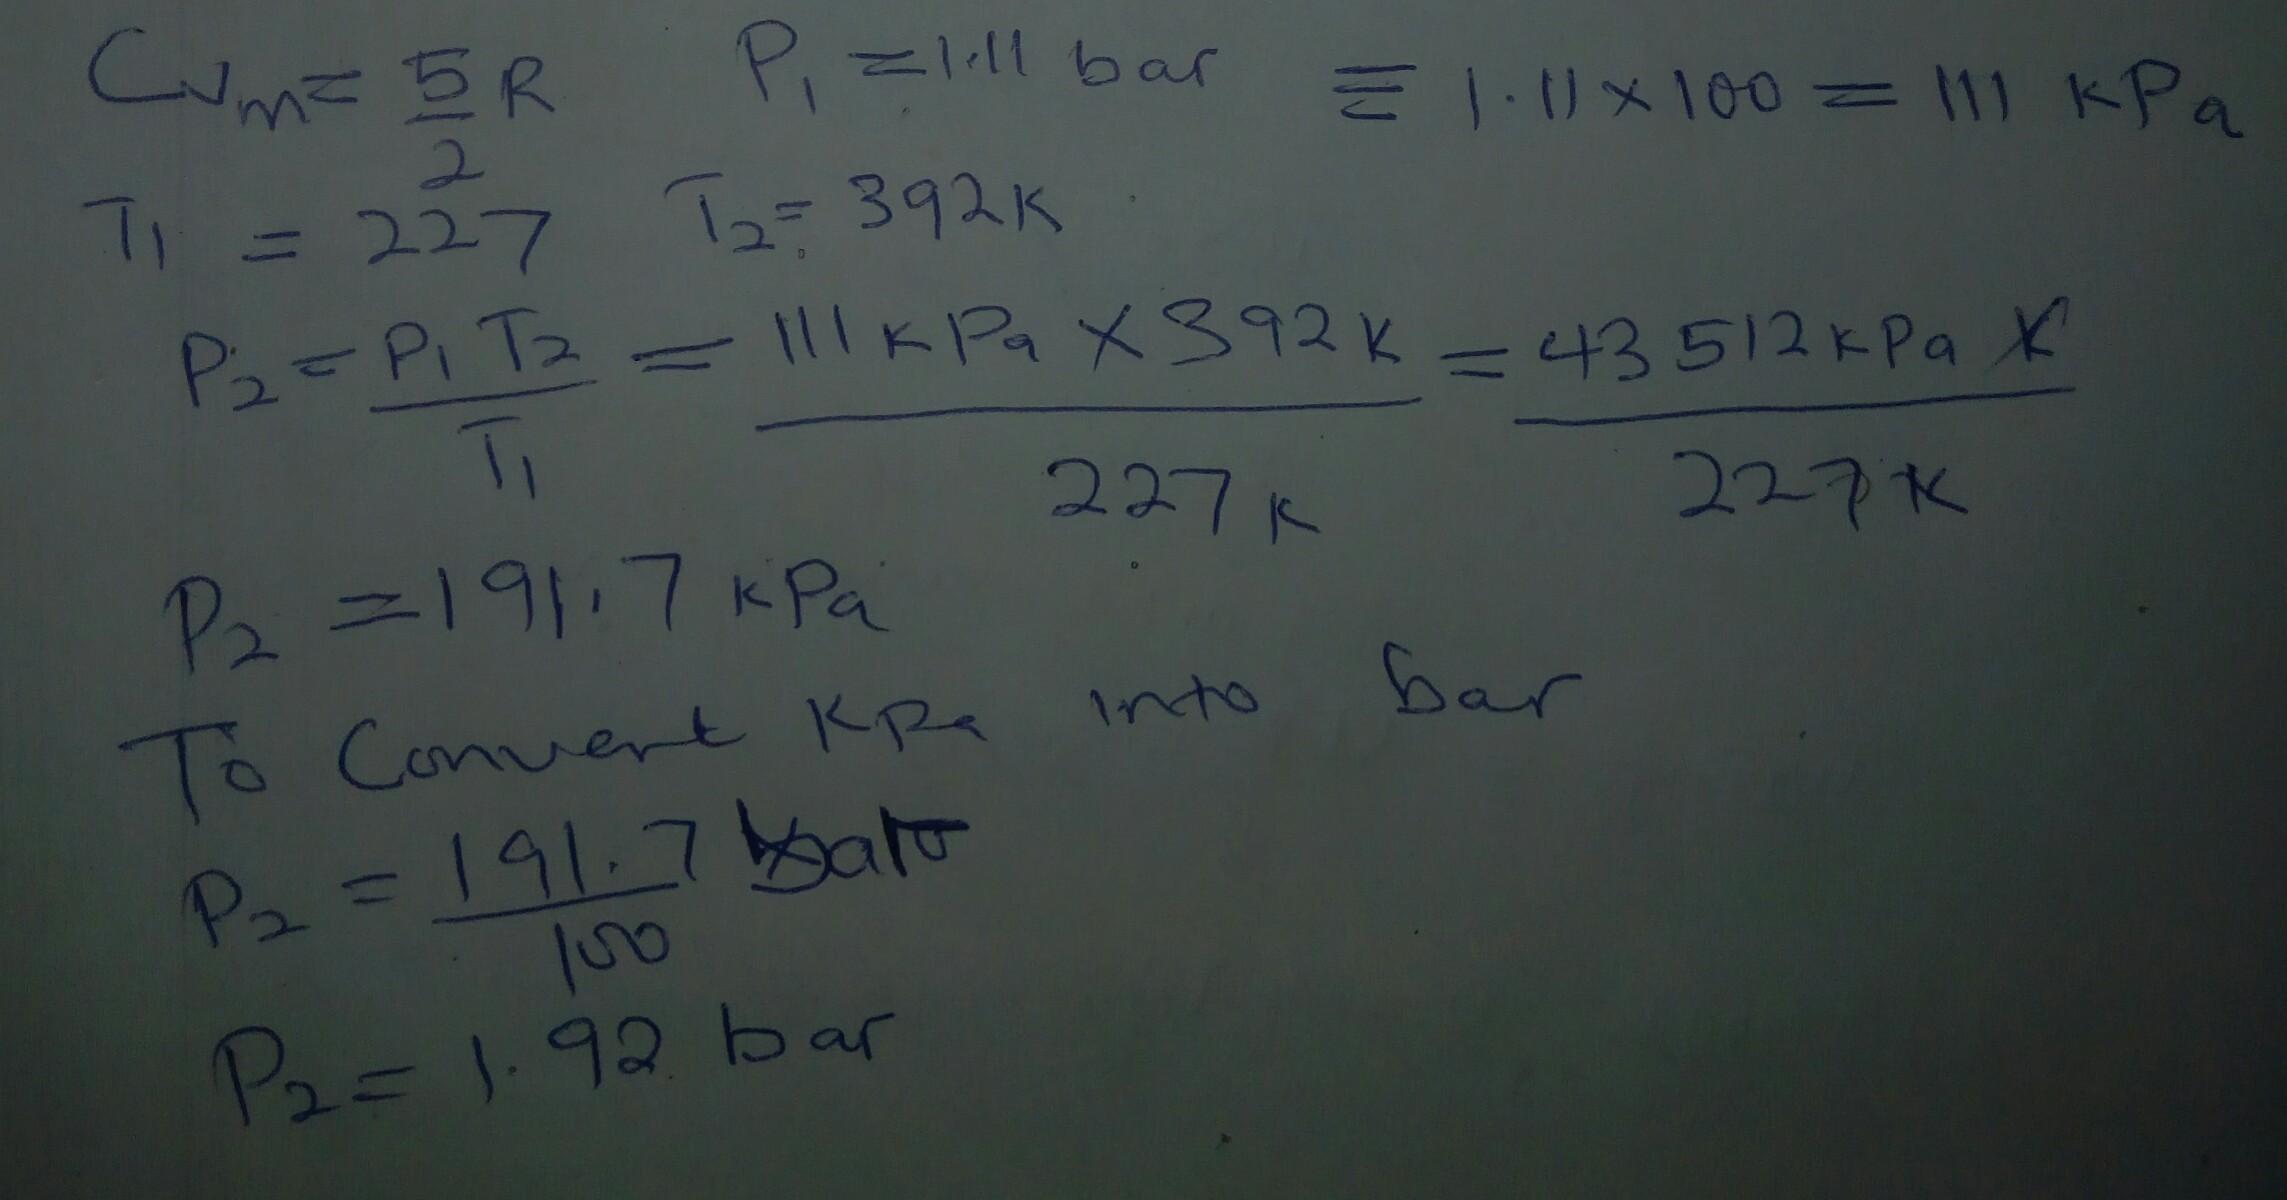 Cvm = 5/2 R P₁ = 1.11 bar ≡ 1.11 × 100 = 111 KPa
T₁ = 227 T₂ = 392K
P₂ = P₁ T₂ / T₁ = 111 KPa × 392 K / 227 K = 43512 KPa K / 227 K
P₂ = 191.7 KPa
To Convert KPa into bar
P₂ = 191.7 / 100 bar
P₂ = 1.92 bar